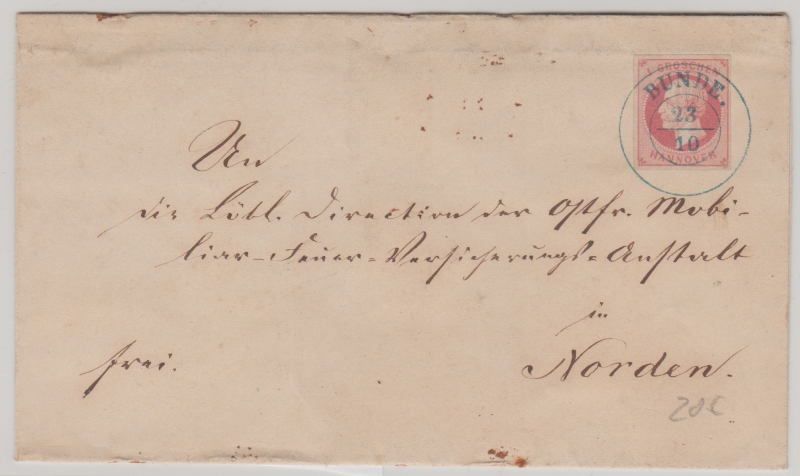 1 GROSCHEN
HANNOVER
BUNDE.
23
10
An
die Löbl. Direction der Ostfr. Mobi-
liar-Feuer-Versicherungs-Anstalt
in
Norden.
frei.